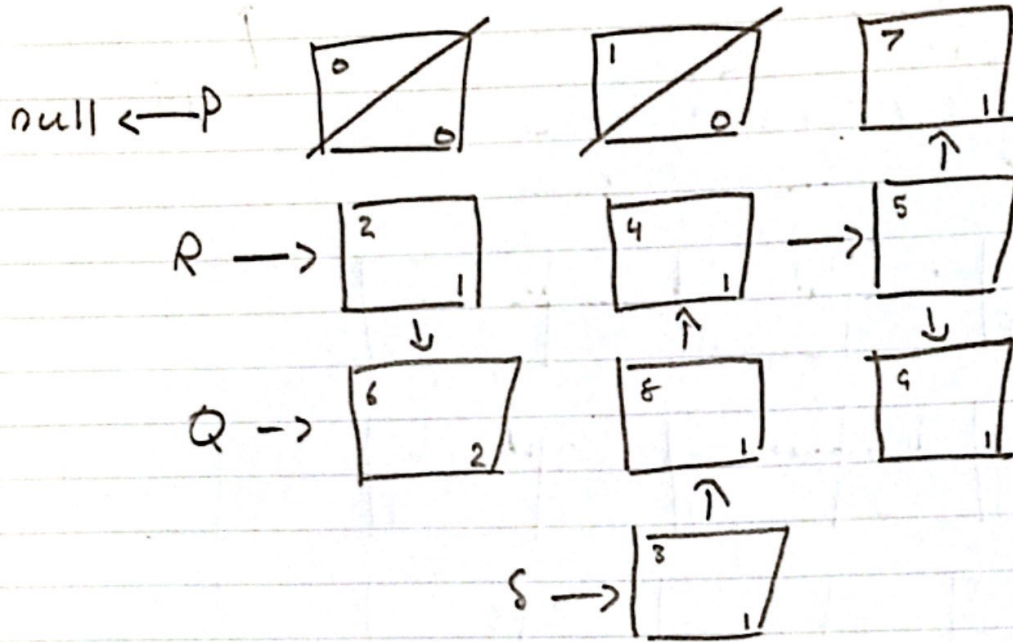 null ← P 0 0 1 0 7 1
R → 2 1 4 1 → 5
↓ ↑ ↓ ↑
Q → 6 2 8 1 9 1
↑
S → 3 1